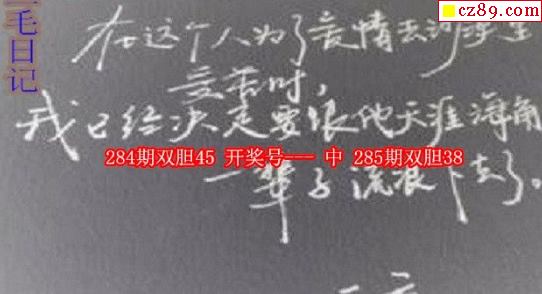 cz89.com
毛日记
在这个人为了爱情去
受苦时,
我已经决定要跟他天涯海角
284期双胆45 开奖号--- 中 285期双胆38
一辈子流浪下去了。